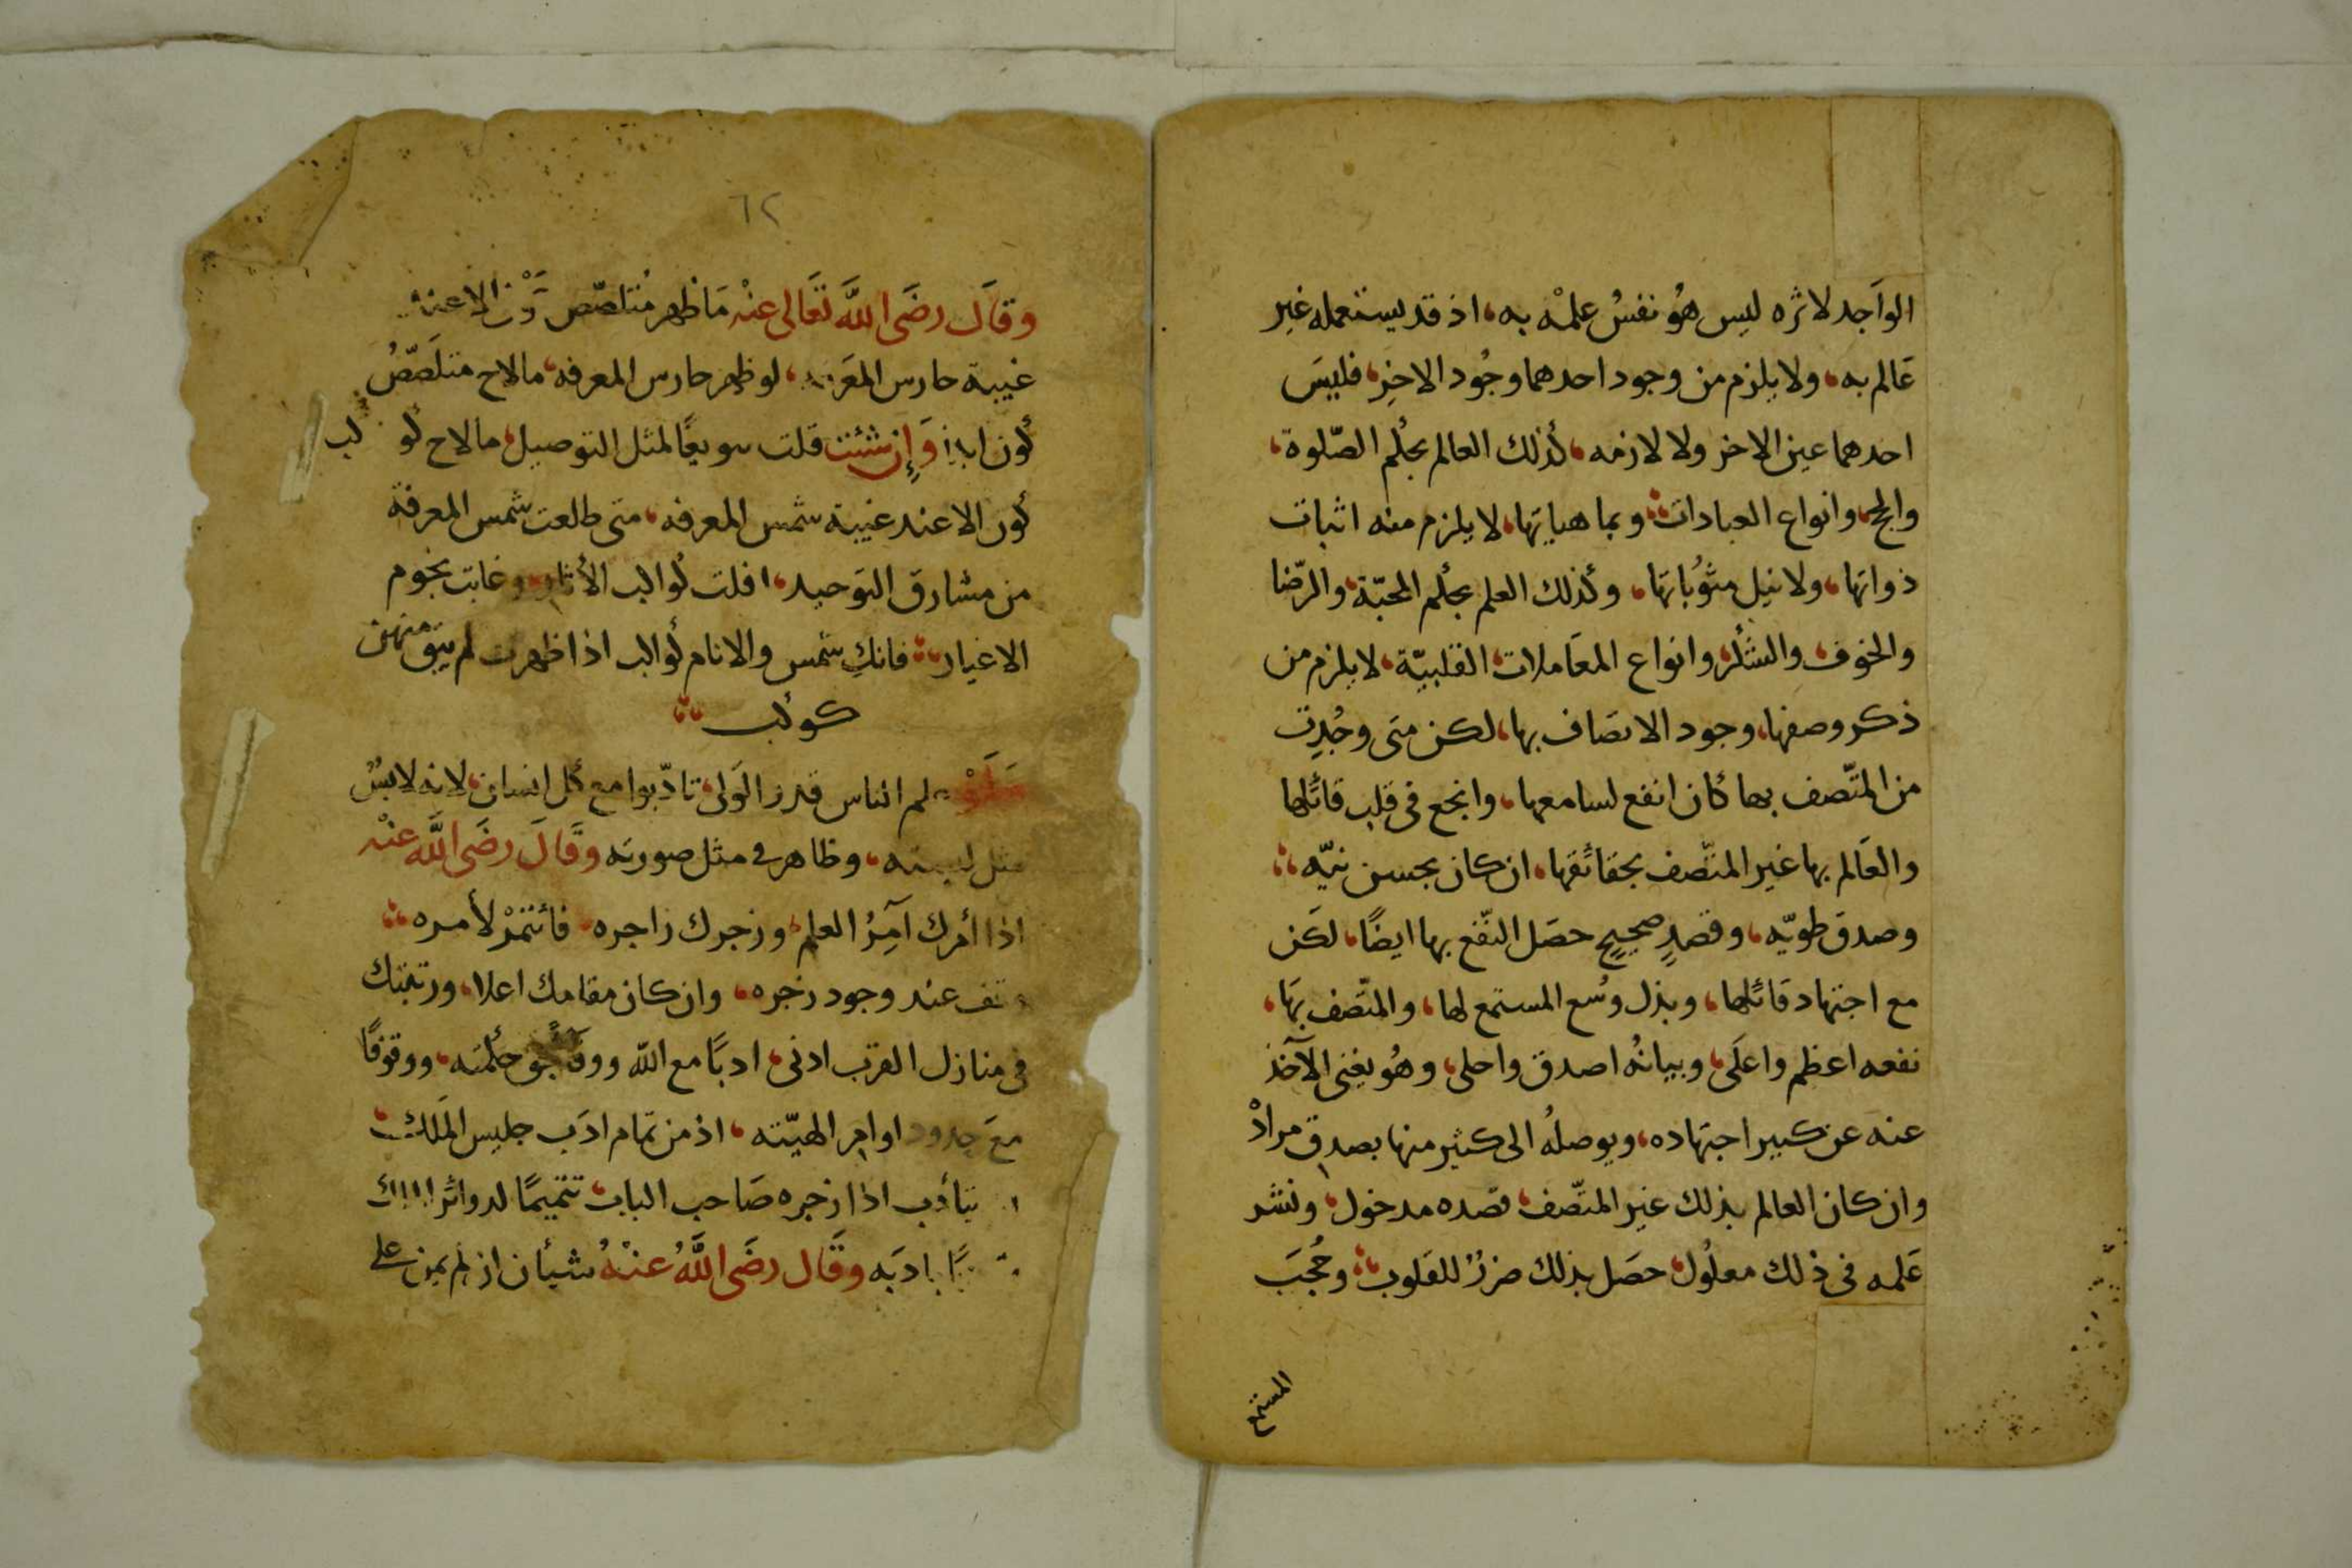 الواجد لاثره ليس هُو نفسُ علمْه به، اذ قد يستعمله غير
عَالم به، ولا يلزم من وجود احدهما وجُود الاخر، فليسَ
احدهما عين الاخر ولا لازمه، كذلك العالم بحكم الصّلوة،
والحج، وانواع العبادات، وبماهياتها، لا يلزم منه اثبات
ذواتها، ولا نيل مثوُباتها، وكذلك العلم بحكم المحبّة، والرّضا
والخوف، والشكر، وانواع المعَاملات القلبيّة، لا يلزم من
ذكر وصفها، وجود الاتصَاف بها، لكن متى وجُدِت
من المتّصف بها كان انفع لسامعها، وانجع فى قلب قائلها
والعَالم بها غير المتّصف بحقائقها، ان كان بحسن نيّه
وصدق طويّه، وقصدٍ صحيحٍ حصَل النّفع بها ايضًا، لكن
مع اجتهاد قائلها، وبذل وسُع المستمع لها، والمتّصف بهَا،
نفعه اعظم واعلَى، وبيانُه اصدق واحلى، وهُو يغنى الآخذ
عنه عن كبير اجتهاده، ويوصلُه الى كثير منها بصدق مرادْ
وان كان العالم بذلك غير المتّصف، قصده مدخول، ونشر
عَلمه فى ذلك معلُول، حصَل بذلك ضررُ للقَلوب، وحُجبَ
المستمع
٦٢
وقَال رضَى اللهَّ تعَالى عنْه مَا ظهر مُتلصّص الا عند
غيبة حارس المعَرفه، لو ظهر حارس المعرفه، مالاح متلَصّصُ
كون ابدا وَإِن شئت قلت سويعًا لمثل التوصيل، مالاح كوكب
كون الا عند غيبة شمس المعرفه، متى طلعت شمس المعرفة
من مشارق التوَحيد، افلت كواكب الأثار، وغابت نجوم
الاغيار، فانكِ شمس والانام كواكب اذا ظهرت لم يبق منهن
كوكب
علم الناس قدر الوَلى، تادّبوا مع كل انسان، لانه لابسُ
مثل لبسته، وظاهر فى مثل صورته وقَالَ رضَى اللهَّ عنْه
اذا أمرك آمِرُ العلم، وزجرك زاجره، فائتمرْ لأمره
وقف عند وجود زجره، وان كان مقامك اعلا، ورتبتك
فى منازل القرب ادنى، ادبًا مع الله ووفاً بحق حكمته، ووقوفًا
معَ حدود اوامر الهيّته، اذ من تمام ادَب جليس المَلك
يتأدب اذا زجره صَاحب الباب، تتميمًا لدوائر
ادَبه وقَال رضَى اللهَّ عنْهُ شيأن از لم يمن على